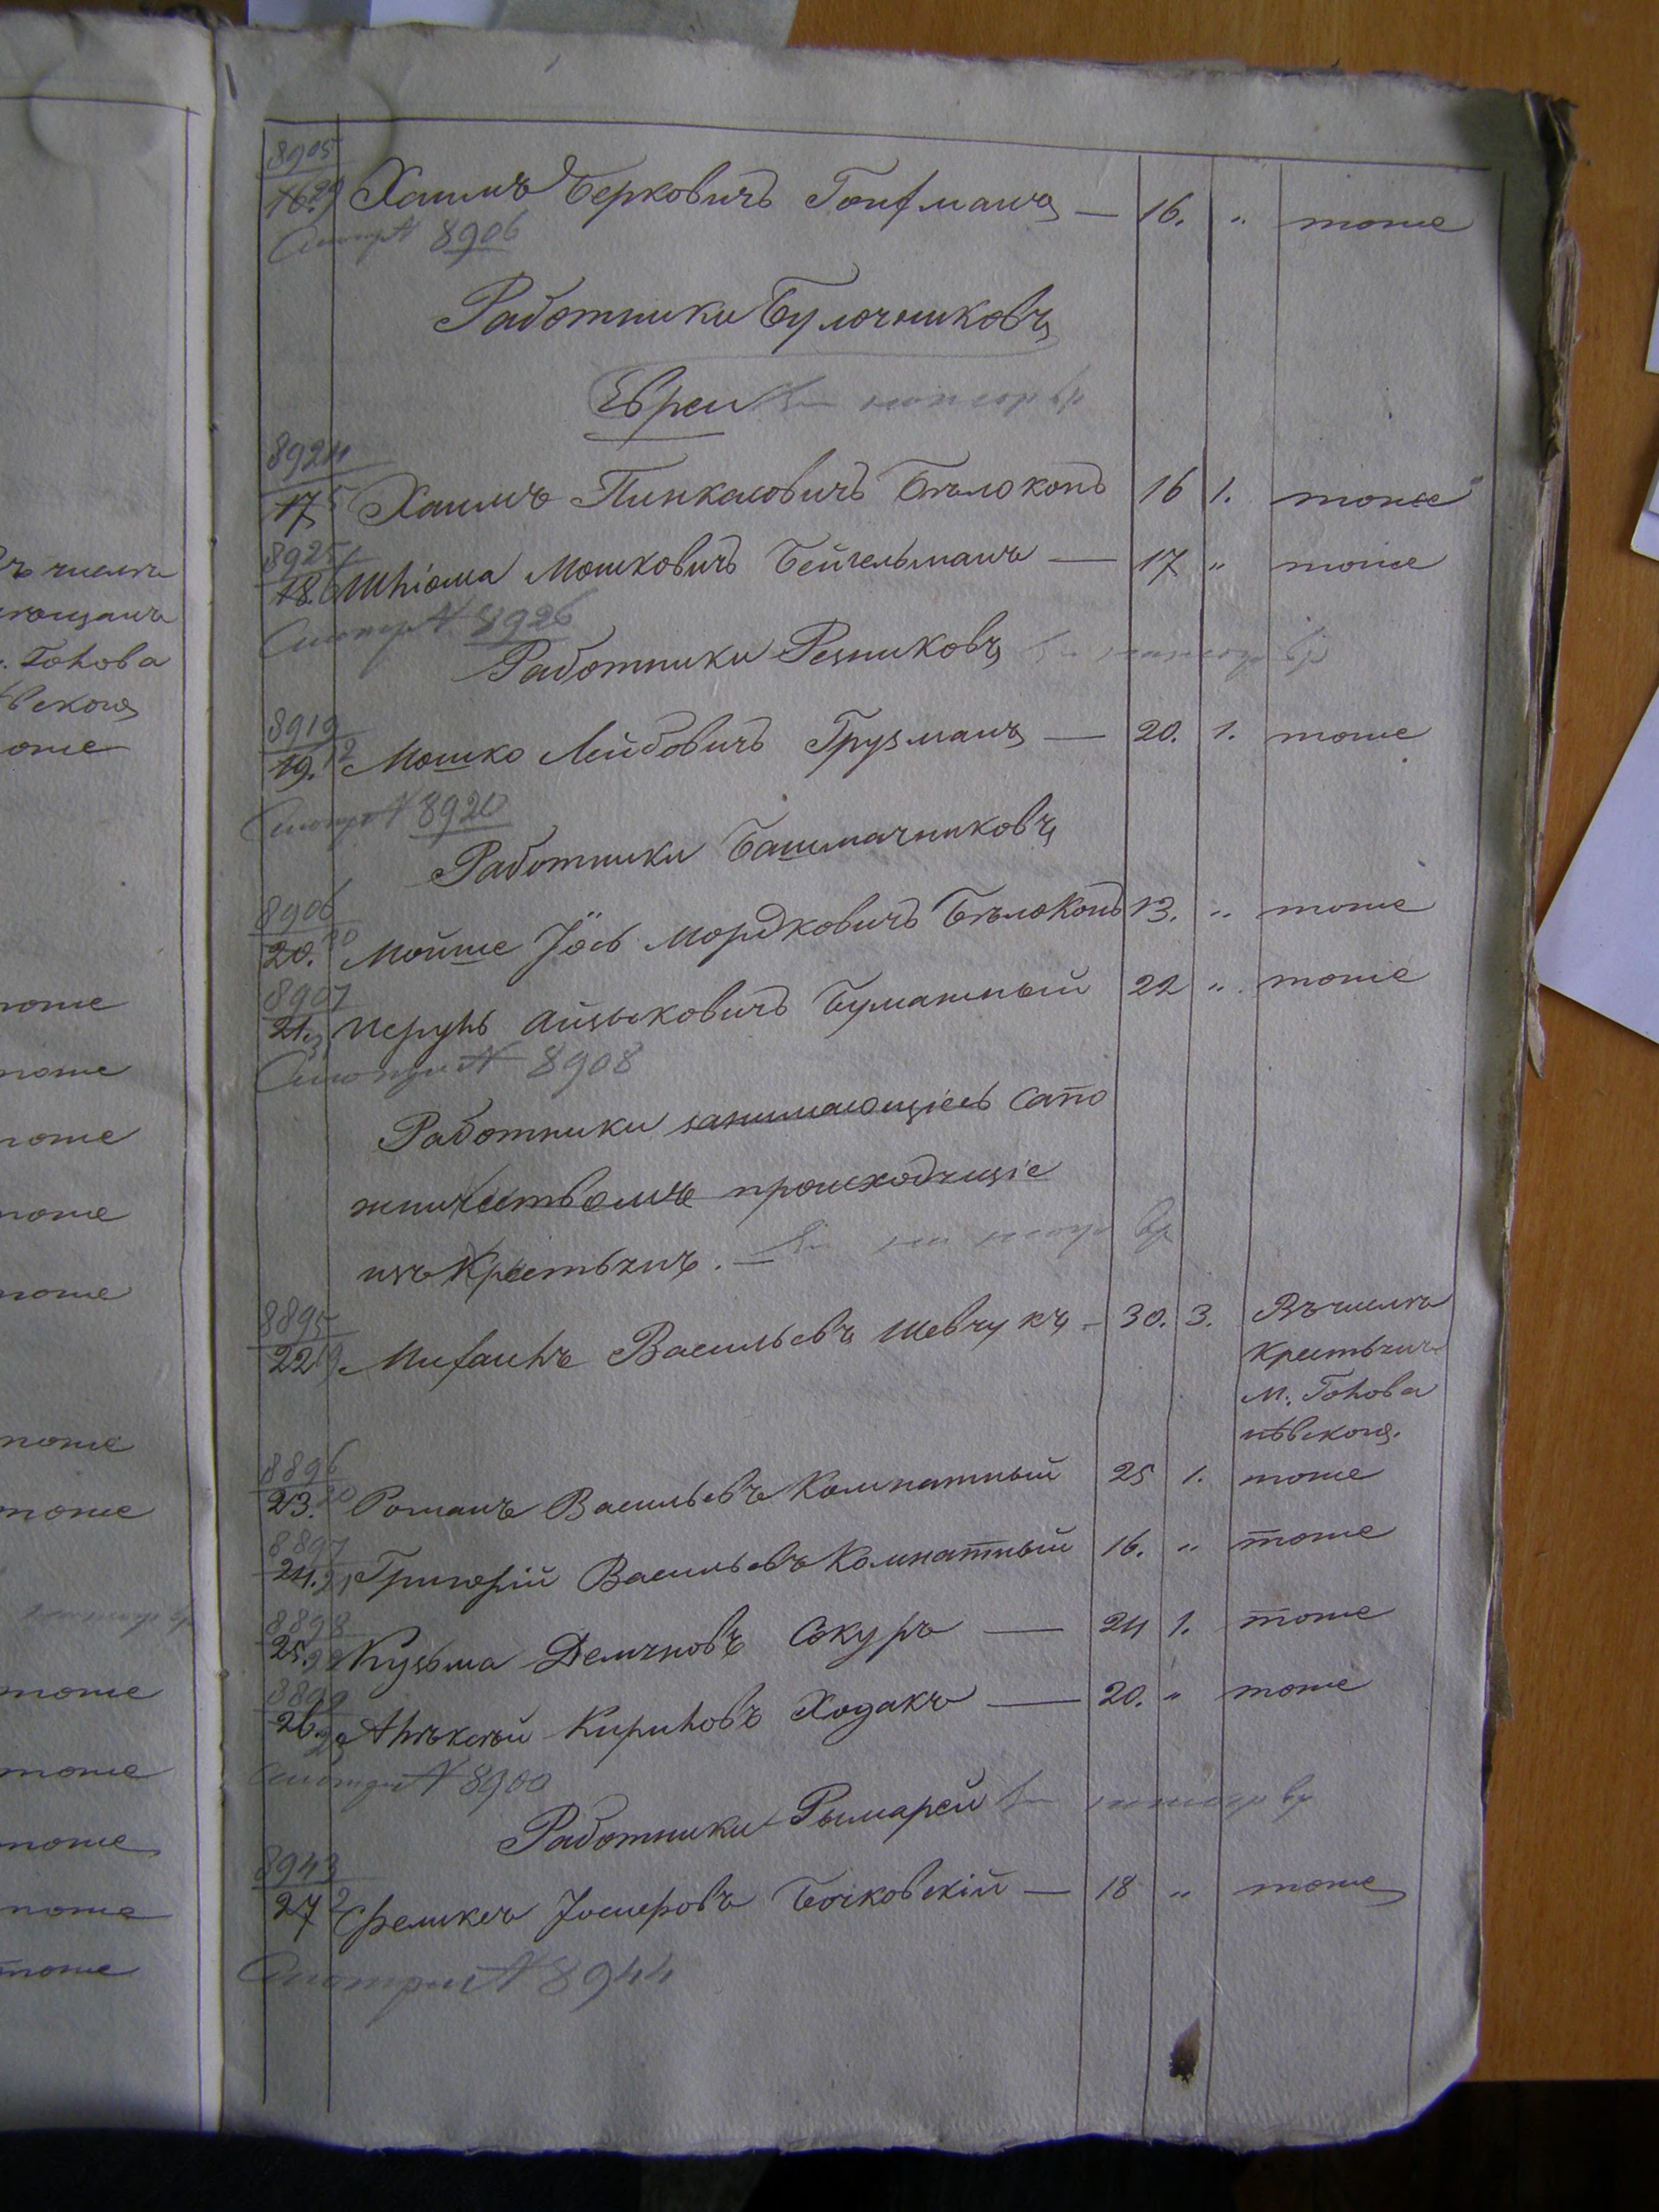 8905
16. 29 Хаимъ Берковичъ Гоифманъ — 16. " тоже
Смотри № 8906
Работники Булочниковъ
Евреи
8924
17 5 Хаимъ Пинкасовичъ Бѣлоконь 16 1. тоже
8925
18. 6 Шліома Мошковичъ Бейгельманъ — 17 " тоже
Смотри № 8926
Работники Резниковъ
8919
19. 12 Мошко Лейбовичъ Грузманъ — 20. 1. тоже
Смотри № 8920
Работники Башмачниковъ
8906
20. 30 Мойше Іось Мордковичъ Бѣлоконь 13. " тоже
8907
21. Исруль Айзыковичъ Бумажный 22 " тоже
Смотри № 8908
Работники занимающіесь Сапо
жничествомъ происходящіе
изъ Крестьянъ. —
8895
22 19 Михаилъ Васильевъ Шевчукъ — 30. 3. Въ числѣ
Крестьянъ
М. Голова
нѣвскощ.
8896
23. 20 Романъ Васильевъ Комнатный 25 1. тоже
8897
24. 21 Григорій Васильевъ Комнатный 16. " тоже
8898
25. 22 Кузьма Демяновъ Сокуръ — 24 1. тоже
8899
26. Алѣксѣй Кириловъ Ходакъ — 20. " тоже
Смотри № 8900
Работники Рымарей
8943
27 2 Феликсъ Іосиеровъ Бочковскій — 18 " тоже
Смотри № 8944